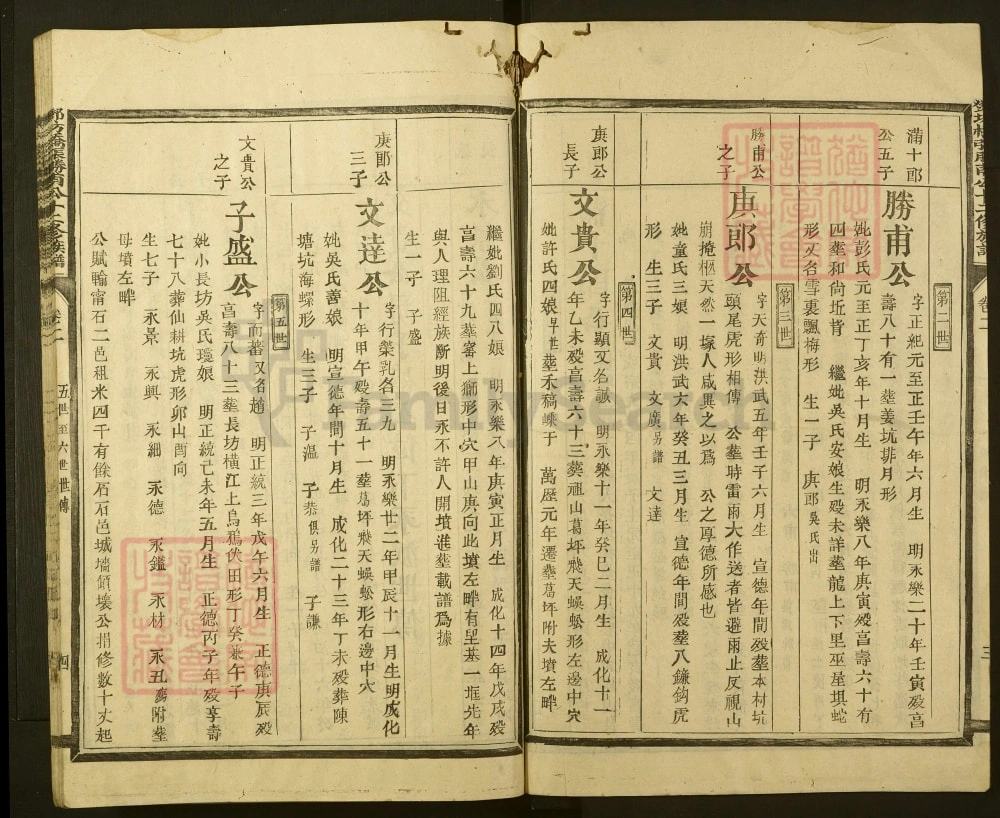 第二世
滿十郎
公五子
勝甫公
字正祀元至正壬午年六月生 明永樂二十年壬寅歿享
壽八十有一塟姜坑排月形
妣彭氏元至正丁亥年十月生 明永樂八年庚寅歿享壽六十有
四塟和尙坵背 繼妣吳氏安娘生歿未詳塟龍上下里巫屋埧蛇
形又名雪裏飄梅形 生一子 庚郎吳氏出
第三世
勝甫公
之子
庚郎公
字天奇明洪武五年壬子六月生 宣德年間歿塟本村坑
頭尾虎形相傳 公塟時雷雨大作送者皆避雨止反視山
崩掩柩天然一塚人咸異之以爲 公之厚德所感也
妣童氏三娘 明洪武六年癸丑三月生 宣德年間歿塟八鐮鈎虎
形 生三子 文貴 文廣另譜 文達
第四世
庚郎公
長子
文貴公
字行顯又名誠 明永樂十一年癸巳二月生 成化十一
年乙未歿享壽六十三葬祖山葛坪飛天蜈蚣形左邊中穴
妣許氏四娘早世塟禾稿嵊于 萬歷元年遷塟葛坪附夫墳左畔
繼妣劉氏四八娘 明永樂八年庚寅正月生 成化十四年戊戌歿
享壽六十九塟寨上獅形中穴甲山庚向此墳左畔有呈基一堆先年
與人理阻經族斷明後日永不許人開墳進塟載譜爲據
生一子 子盛
庚郎公
三子
文達公
字行榮乳名三九 明永樂廿二年甲辰十一月生明成化
十年甲午歿壽五十一塟葛坪飛天蜈蚣形右邊中穴
妣吳氏善娘 明宣德年間十月生 成化二十三年丁未歿葬陳
塘坑海螺形 生三子 子溫 子恭俱另譜 子謙
第五世
文貴公
之子
子盛公
字而蕃又名趙 明正統三年戊午六月生 正德庚辰歿
享壽八十三塟長坊橫江上烏鴉伏田形丁癸兼午子
妣小長坊吳氏瓊娘 明正統己未年五月生 正德丙子年歿享壽
七十八葬仙耕坑虎形卯山酉向
生七子 永景 永興 永細 永德 永鑑 永材 永丑殤附塟
母墳左畔
公賦輸甯石二邑租米四千有餘石石邑城墻傾壞公捐修數十丈起
卷二
五世至六世世傳
四
三